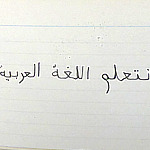 نتعلم اللغة العربية